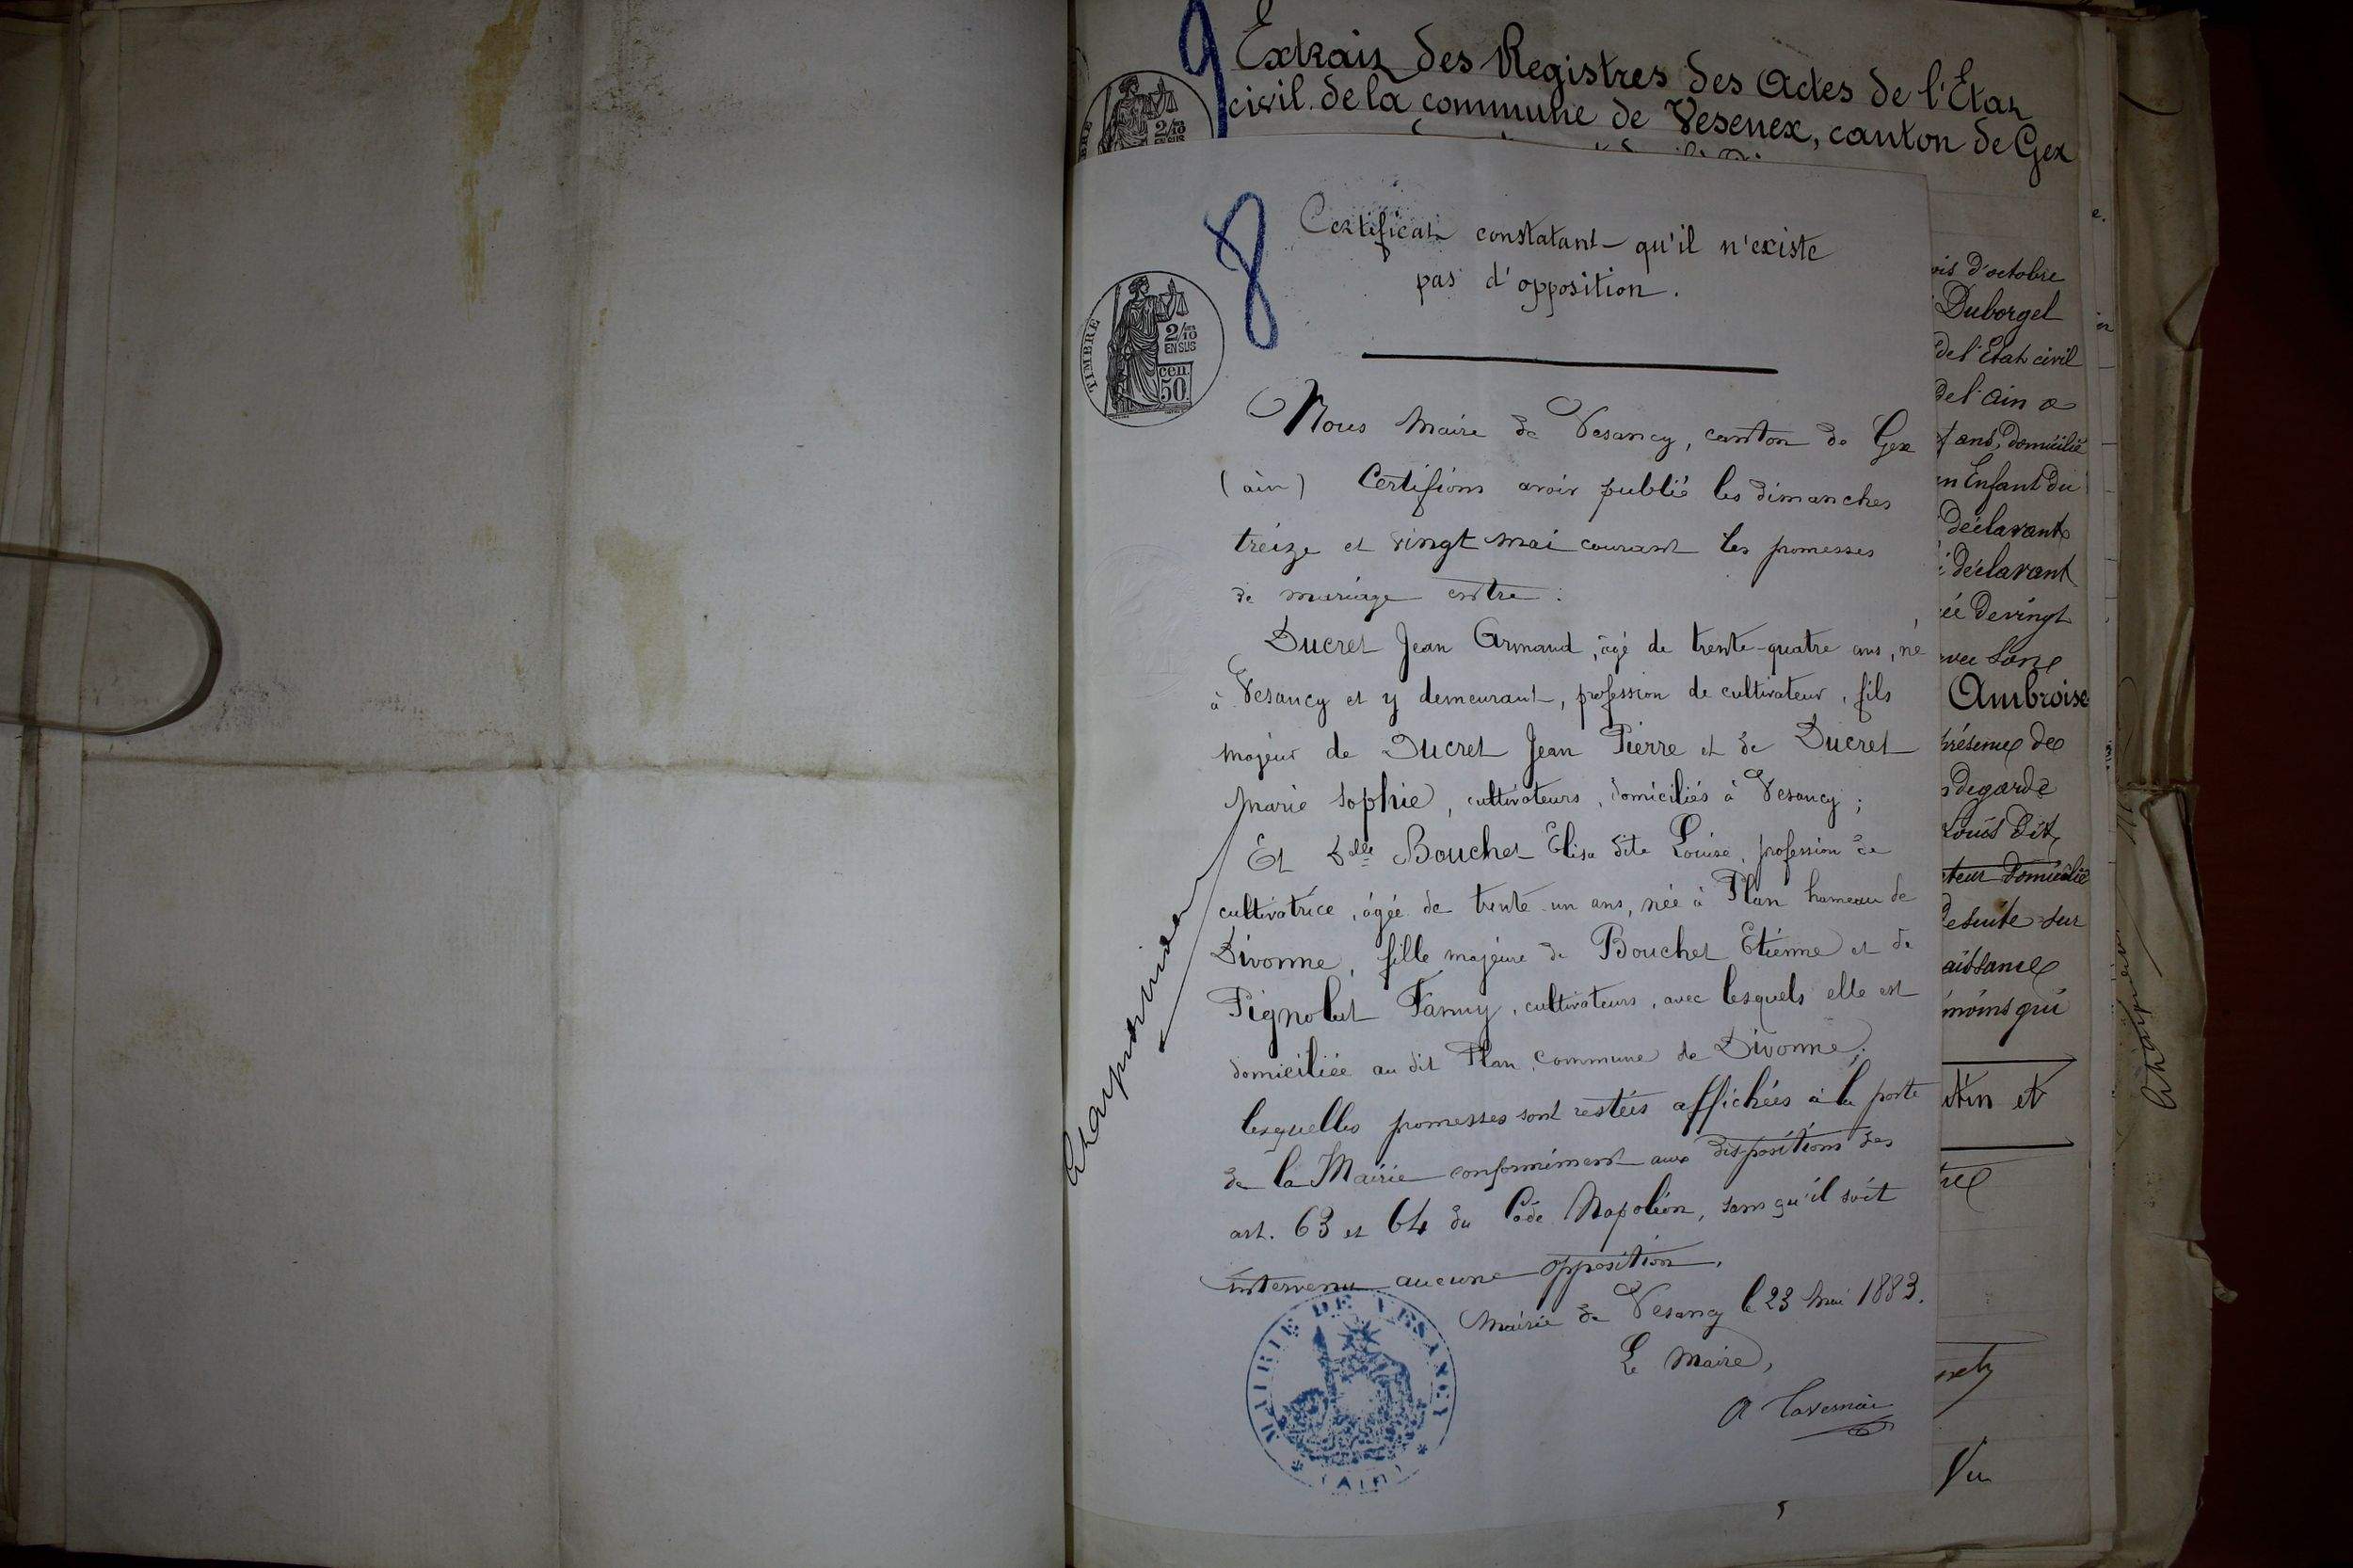 9
Extrait des Registres des Actes de l'Etat
civil de la commune de Vesenex, canton de Gex
2/10
EN SUS
8
Certificat constatant qu'il n'existe
pas d'opposition.
TIMBRE
2/10
EN SUS
50 cen.
Nous Maire de Vesancy, canton de Gex
(ain) Certifions avoir publié les dimanches
treize et vingt mai courant les promesses
de mariage entre :
Ducret Jean Armand, âgé de trente-quatre ans, né
à Vesancy et y demeurant, profession de cultivateur, fils
majeur de Ducret Jean Pierre et de Ducret
Marie Sophie, cultivateurs, domiciliés à Vesancy ;
Et Delle Bouchet Elisa dite Louise, profession de
cultivatrice, âgée de trente-un ans, née à Plan hameau de
Divonne, fille majeure de Bouchet Etienne et de
Pignolet Fanny, cultivateurs, avec lesquels elle est
domiciliée au dit Plan, commune de Divonne ;
lesquelles promesses sont restées affichées à la porte
de la Mairie conformément aux dispositions des
art. 63 et 64 du Code Napoléon, sans qu'il soit
intervenu aucune opposition.
Mairie de Vesancy le 23 Mai 1883.
Le Maire,
MAIRIE DE VESANCY
(Ain)
ois d'octobre
Duborgel
de l'Etat civil
de l'Ain
ans, domicilié
en Enfant du
déclarant
déclarant
ée de vingt
Ambroise
présence de
de garde
Louis dit
cteur domicilié
de suite sur
aissance
émoins qui